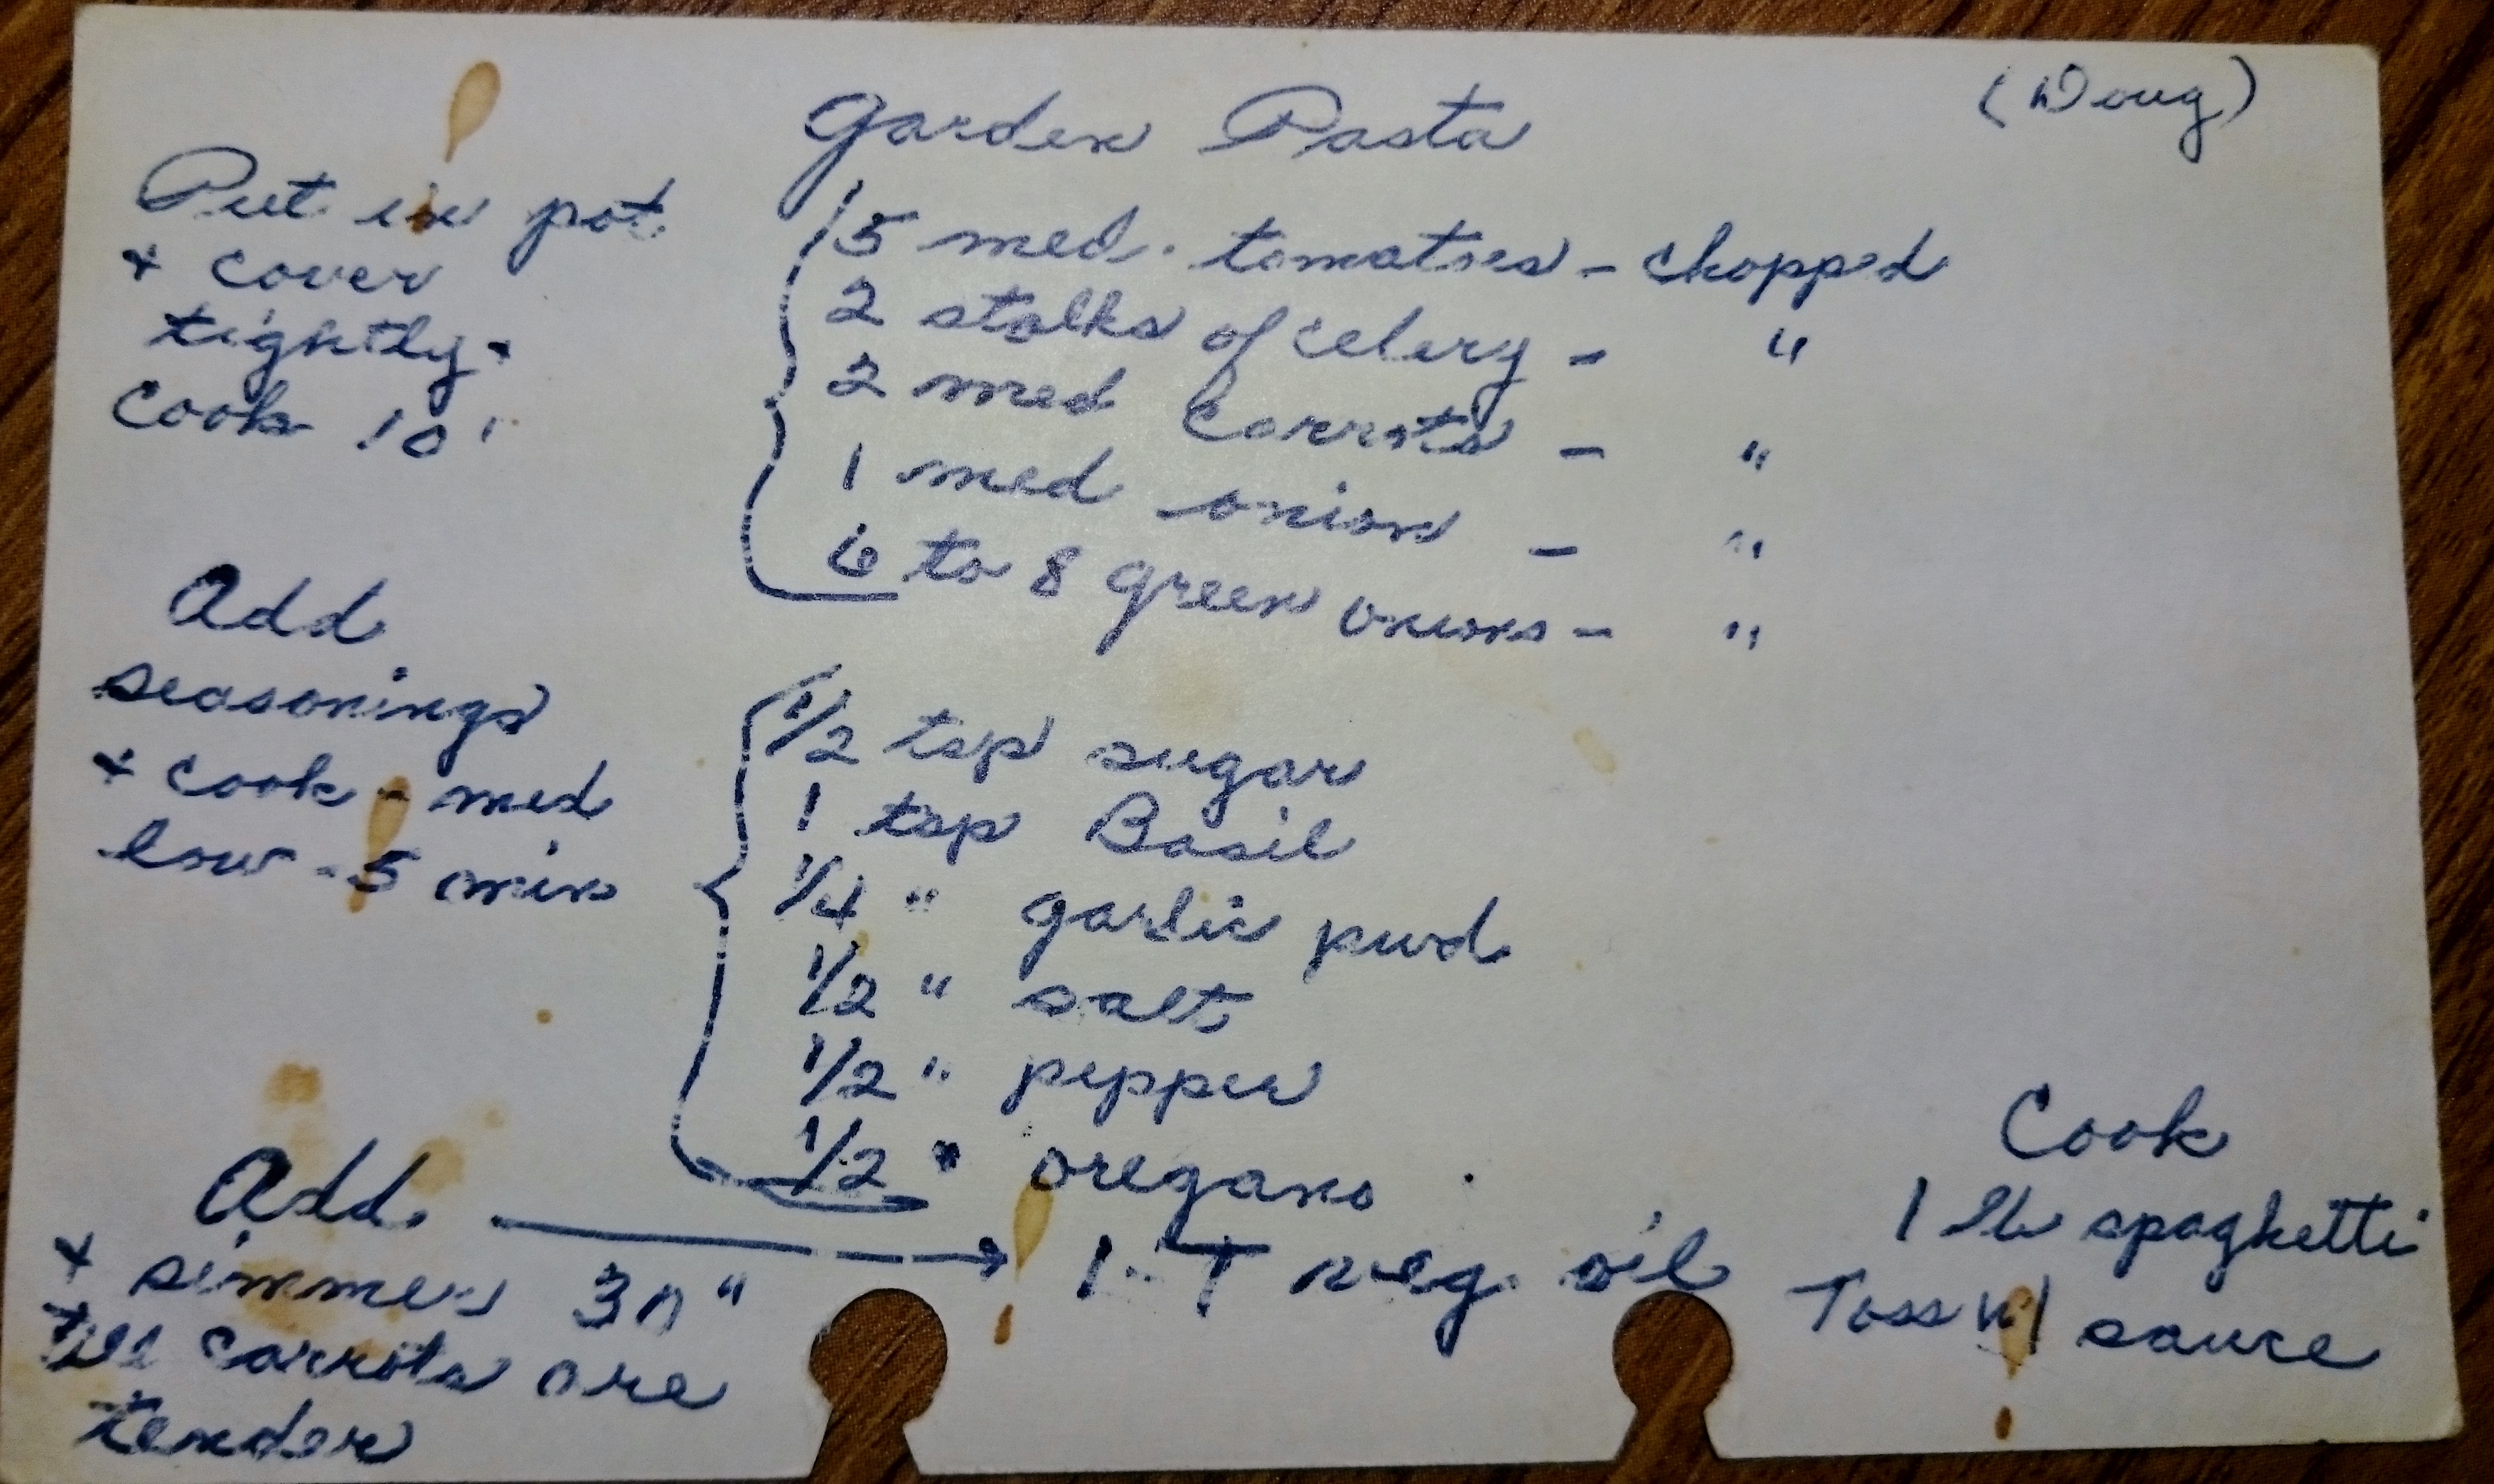 Garden Pasta
(Doug)
Put in pot
& cover
tightly &
Cook 10'
5 med. tomatoes - chopped
2 stalks of celery - "
2 med carrots - "
1 med onion - "
6 to 8 green onions - "
Add
seasonings
& cook - med
low - 5 min
1/2 tsp sugar
1 tsp Basil
1/4 " garlic pwd
1/2 " salt
1/2 " pepper
1/2 " oregano
Add → 1 T veg. oil
& simmer 30"
till carrots are
tender
Cook
1 lb spaghetti
Toss w/ sauce